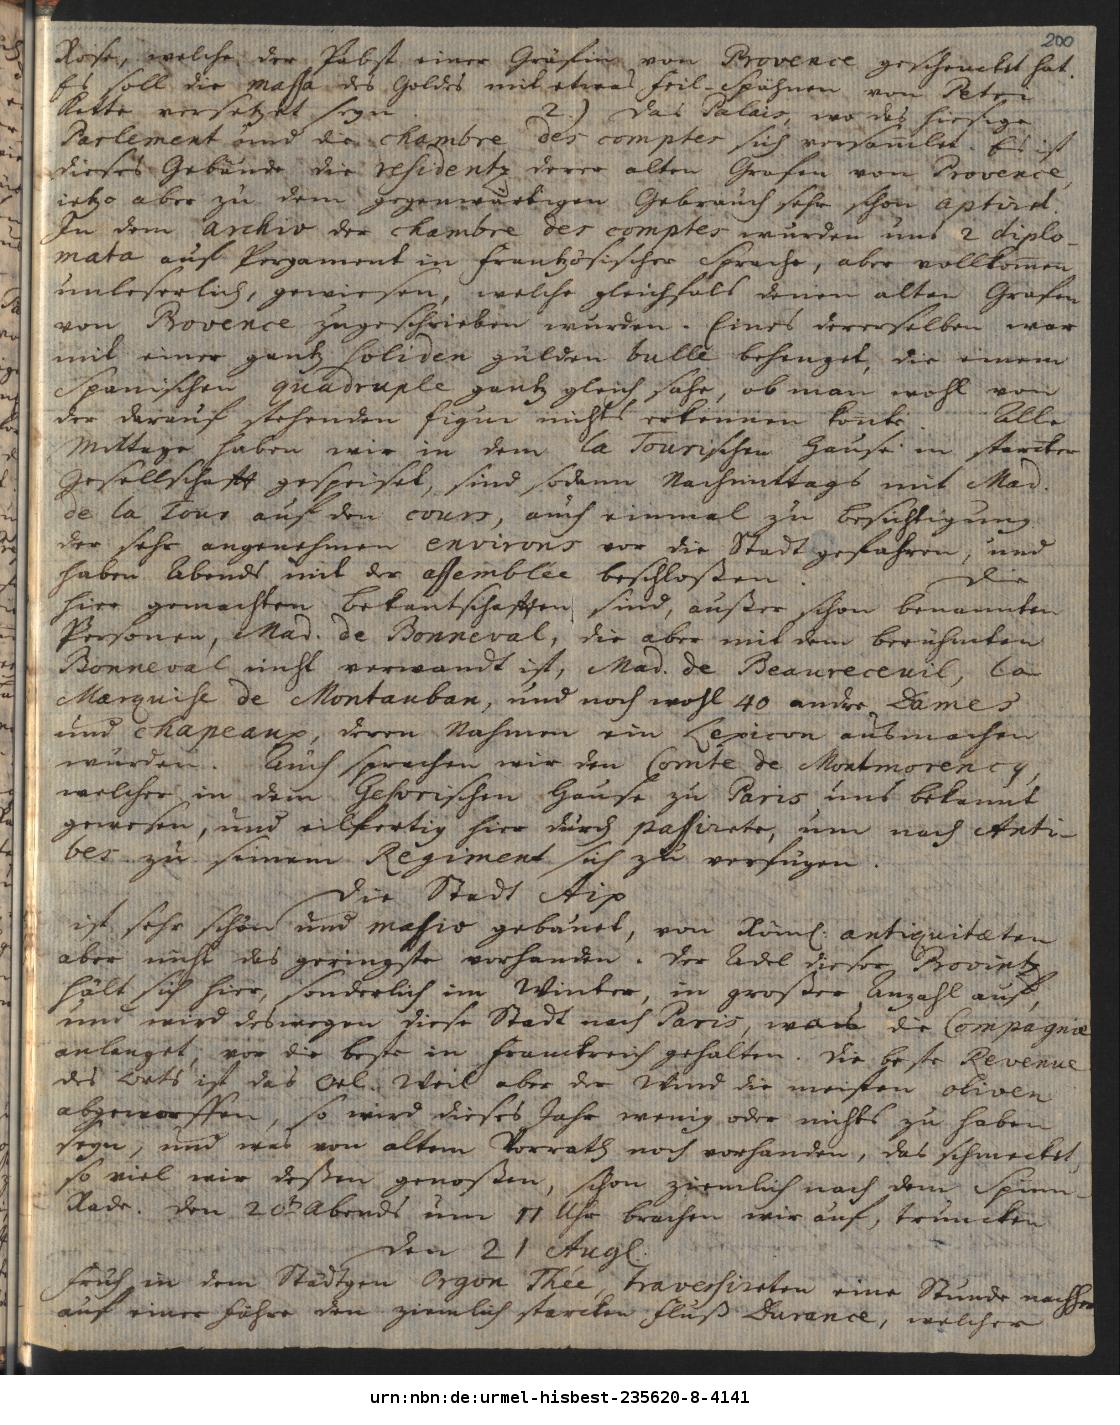 200
Rose, welche der Pabst einer Gräfin von Provence geschencket hat.
Es soll die massa des Goldes mit etwas Feil-Spähnen von Petri
Kette versetzet seyn. 2.) Das Palais, wo das hiesige
Parlement und die chambre des comptes sich versamlet. Es ist
dieses Gebäude die residentz derer alten Grafen von Provence,
ietzo aber zu dem gegenwärtigen Gebrauch sehr schön aptiret.
In dem archiv der chambre des comptes wurden uns 2 diplo-
mata auf Pergament in Frantzösischer Sprache, aber vollkommen
unleserlich, gewiesen, welche gleichfals denen alten Grafen
von Provence zugeschrieben wurden. Eines dererselben war
mit einer gantz soliden gülden bulle behenget, die einem
Spanischen quadruple gantz gleich sahe, ob man wohl von
der darauf stehenden Figur nichts erkennen konte. Alle
Mittage haben wir in dem la Tourischen Hause in starcker
Gesellschafft gespeiset, sind sodann Nachmittags mit Mad.
de la Tour auf den cours, auch einmal zu Besichtigung
der sehr angenehmen environs vor die Stadt gefahren, und
haben Abends mit der assemblée beschloßen. Die
hier gemachten Bekantschafften sind, außer schon benannten
Personen, Mad. de Bonneval, die aber mit dem berühmten
Bonneval nicht verwandt ist, Mad. de Beaureceuil, la
Marquise de Montauban, und noch wohl 40 andre Dames
und chapeaux, deren Nahmen ein Lexicon ausmachen
würden. Auch sprachen wir den Comte de Montmorency,
welcher in dem Hause zu Paris uns bekannt
gewesen, und eilfertig hier durch passirete, um nach Anti-
bes zu seinem Regiment sich zu verfügen.
Die Stadt Aix
ist sehr schön und massiv gebauet, von Röml. antiquitæten
aber nicht das geringste vorhanden. Der Adel dieser Provintz
hält sich hier, sonderlich im Winter, in großer Anzahl auf,
und wird deswegen diese Stadt nach Paris, was die Compagnie
anlanget, vor die beste in Franckreich gehalten. Die beste Revenue
des Orts ist das Oel. Weil aber der Wind die meisten oliven
abgeworffen, so wird dieses Jahr wenig oder nichts zu haben
seyn, und was von altem Vorrath noch vorhanden, das schmecket,
so viel wir deßen genoßen, schon ziemlich nach dem Spinn-
Rade. Den 20t Abends um 11 Uhr brachen wir auf, truncken
den 21 Augl.
früh in dem Städtgen Orgon Thée, traversireten eine Stunde nachher
auf einer Fähre den ziemlich starcken Fluß Durance, welcher
urn:nbn:de:urmel-hisbest-235620-8-4141